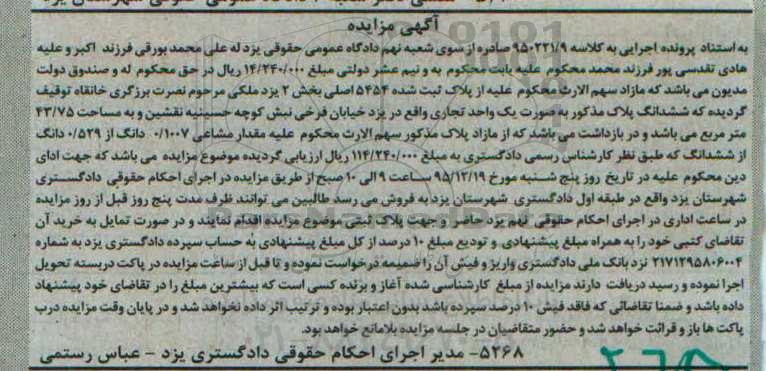 آگهی مزایده
به استناد پرونده اجرایی به کلاسه ۹۵۰۲۲۱/۹ صادره از سوی شعبه نهم دادگاه عمومی حقوقی یزد له علی محمد بورقی فرزند اکبر و علیه
هادی تقدسی پور فرزند محمد محکوم علیه بابت محکوم به و نیم عشر دولتی مبلغ ۱۴/۲۴۰/۰۰۰ ریال در حق محکوم له و صندوق دولت
مدیون می باشد که مازاد سهم الارث محکوم علیه از پلاک ثبت شده ۵۴۵۴ اصلی بخش ۲ یزد ملکی مرحوم نصرت برزگری خانقاه توقیف
گردیده که ششدانگ پلاک مذکور به صورت یک واحد تجاری واقع در یزد خیابان فرخی نبش کوچه حسینیه نقشین و به مساحت ۴۳/۷۵
متر مربع می باشد و در بازداشت می باشد که از مازاد پلاک مذکور سهم الارث محکوم علیه مقدار مشاعی ۰/۱۰۰۷ دانگ از ۰/۵۲۹ دانگ
از ششدانگ که طبق نظر کارشناس رسمی دادگستری به مبلغ ۱۱۴/۲۴۰/۰۰۰ ریال ارزیابی گردیده موضوع مزایده می باشد که جهت ادای
دین محکوم علیه در تاریخ روز پنج شنبه مورخ ۹۵/۱۲/۱۹ ساعت ۹ الی ۱۰ صبح از طریق مزایده در اجرای احکام حقوقی دادگستری
شهرستان یزد واقع در طبقه اول دادگستری شهرستان یزد به فروش می رسد طالبین می توانند ظرف مدت پنج روز قبل از روز مزایده
در ساعت اداری در اجرای احکام حقوقی نهم یزد حاضر و جهت پلاک ثبتی موضوع مزایده اقدام نمایند و در صورت تمایل به خرید آن
تقاضای کتبی خود را به همراه مبلغ پیشنهادی و تودیع مبلغ ۱۰ درصد از کل مبلغ پیشنهادی به حساب سپرده دادگستری یزد به شماره
۲۱۷۱۲۹۵۸۰۶۰۰۴ نزد بانک ملی دادگستری واریز و فیش آن را ضمیمه درخواست نموده و تا قبل از ساعت مزایده در پاکت دربسته تحویل
اجرا نموده و رسید دریافت دارند مزایده از مبلغ کارشناسی شده آغاز و برنده کسی است که بیشترین مبلغ را در تقاضای خود پیشنهاد
داده باشد و ضمنا تقاضائی که فاقد فیش ۱۰ درصد سپرده باشد بدون اعتبار بوده و ترتیب اثر داده نخواهد شد و در پایان وقت مزایده درب
پاکت ها باز و قرائت خواهد شد و حضور متقاضیان در جلسه مزایده بلامانع خواهد بود.
۵۲۶۸- مدیر اجرای احکام حقوقی دادگستری یزد - عباس رستمی